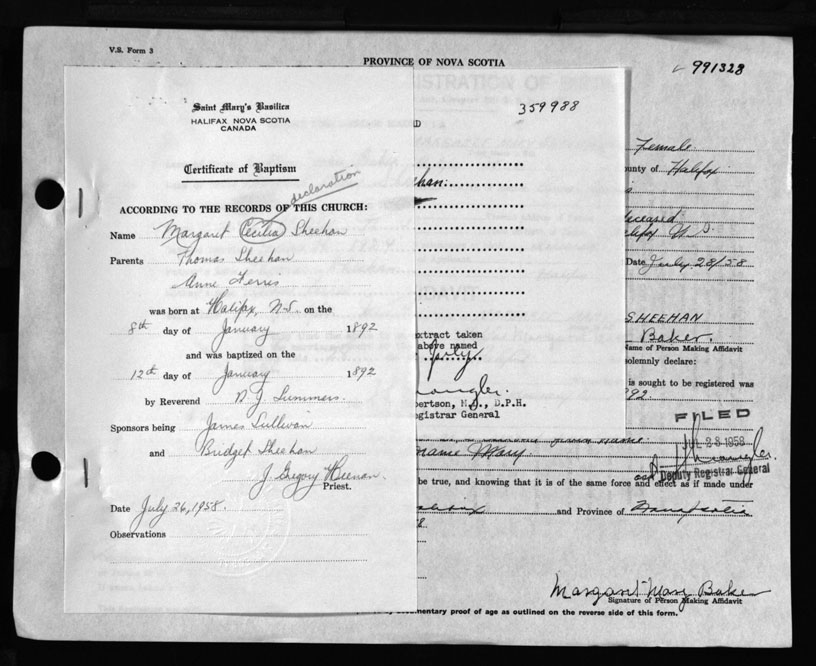 V.S. Form 3
PROVINCE OF NOVA SCOTIA
991328
359988
Saint Mary's Basilica
HALIFAX NOVA SCOTIA
CANADA
Certificate of Baptism
declaration
ACCORDING TO THE RECORDS OF THIS CHURCH:
Name Margaret Cecilia Sheehan
Parents Thomas Sheehan
Anne Ferris
was born at Halifax, N.S. on the
8th day of January 1892
and was baptized on the
12th day of January 1892
by Reverend Summers
Sponsors being James Sullivan
and Bridget Sheehan
J Gregory
Priest.
Date July 26, 1958.
Observations
han
extract taken
above named
July
bertson, M.D., D.P.H.
gistrar General
Female
unty of Halifax
deceased
alifax N.S.
Date July 28/58
SHEEHAN
Baker.
Name of Person Making Affidavit
solemnly declare:
is sought to be registered was
92.
FILED
JUL 28 1958
Deputy Registrar General
name Mary.
be true, and knowing that it is of the same force and effect as if made under
and Province of Nova Scotia
Margaret Mary Baker
Signature of Person Making Affidavit
mentary proof of age as outlined on the reverse side of this form.